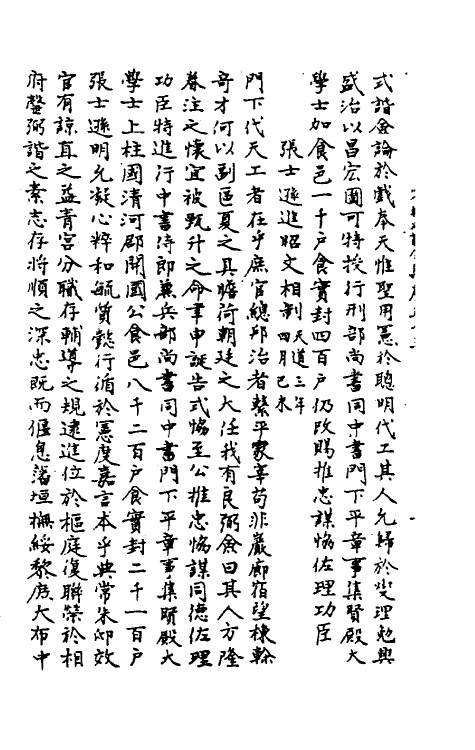 式諧僉論於戲奉天惟聖用憲於聰明代工其人允歸於燮理勉興
盛治以昌宏圖可特授行刑部尚書同中書門下平章事集賢殿大
學士加食邑一千戶食實封四百戶仍改賜推忠謀恊佐理功臣
張士遜進昭文相制天道三年四月己未
門下代天工者在乎庶官總邦治者繫乎冢宰苟非巖廊宿望棟榦
奇才何以副區夏之具瞻荷朝廷之大任我有良弼僉曰其人方隆
眷注之懷宜被甄升之命聿申誕告式恊至公推忠恊謀同德佐理
功臣特進行中書侍郎兼兵部尚書同中書門下平章事集賢殿大
學士上柱國清河郡開國公食邑八千二百戶食實封二千一百戶
張士遜明允凝心粹和毓質懿行循於憲度嘉言本乎典常朱邸效
官有諒直之益青宮分職存輔導之規逮進位於樞庭復聯榮於相
府罄弼諧之素志存將順之深忠既而偃息藩垣撫綏黎庶大布中